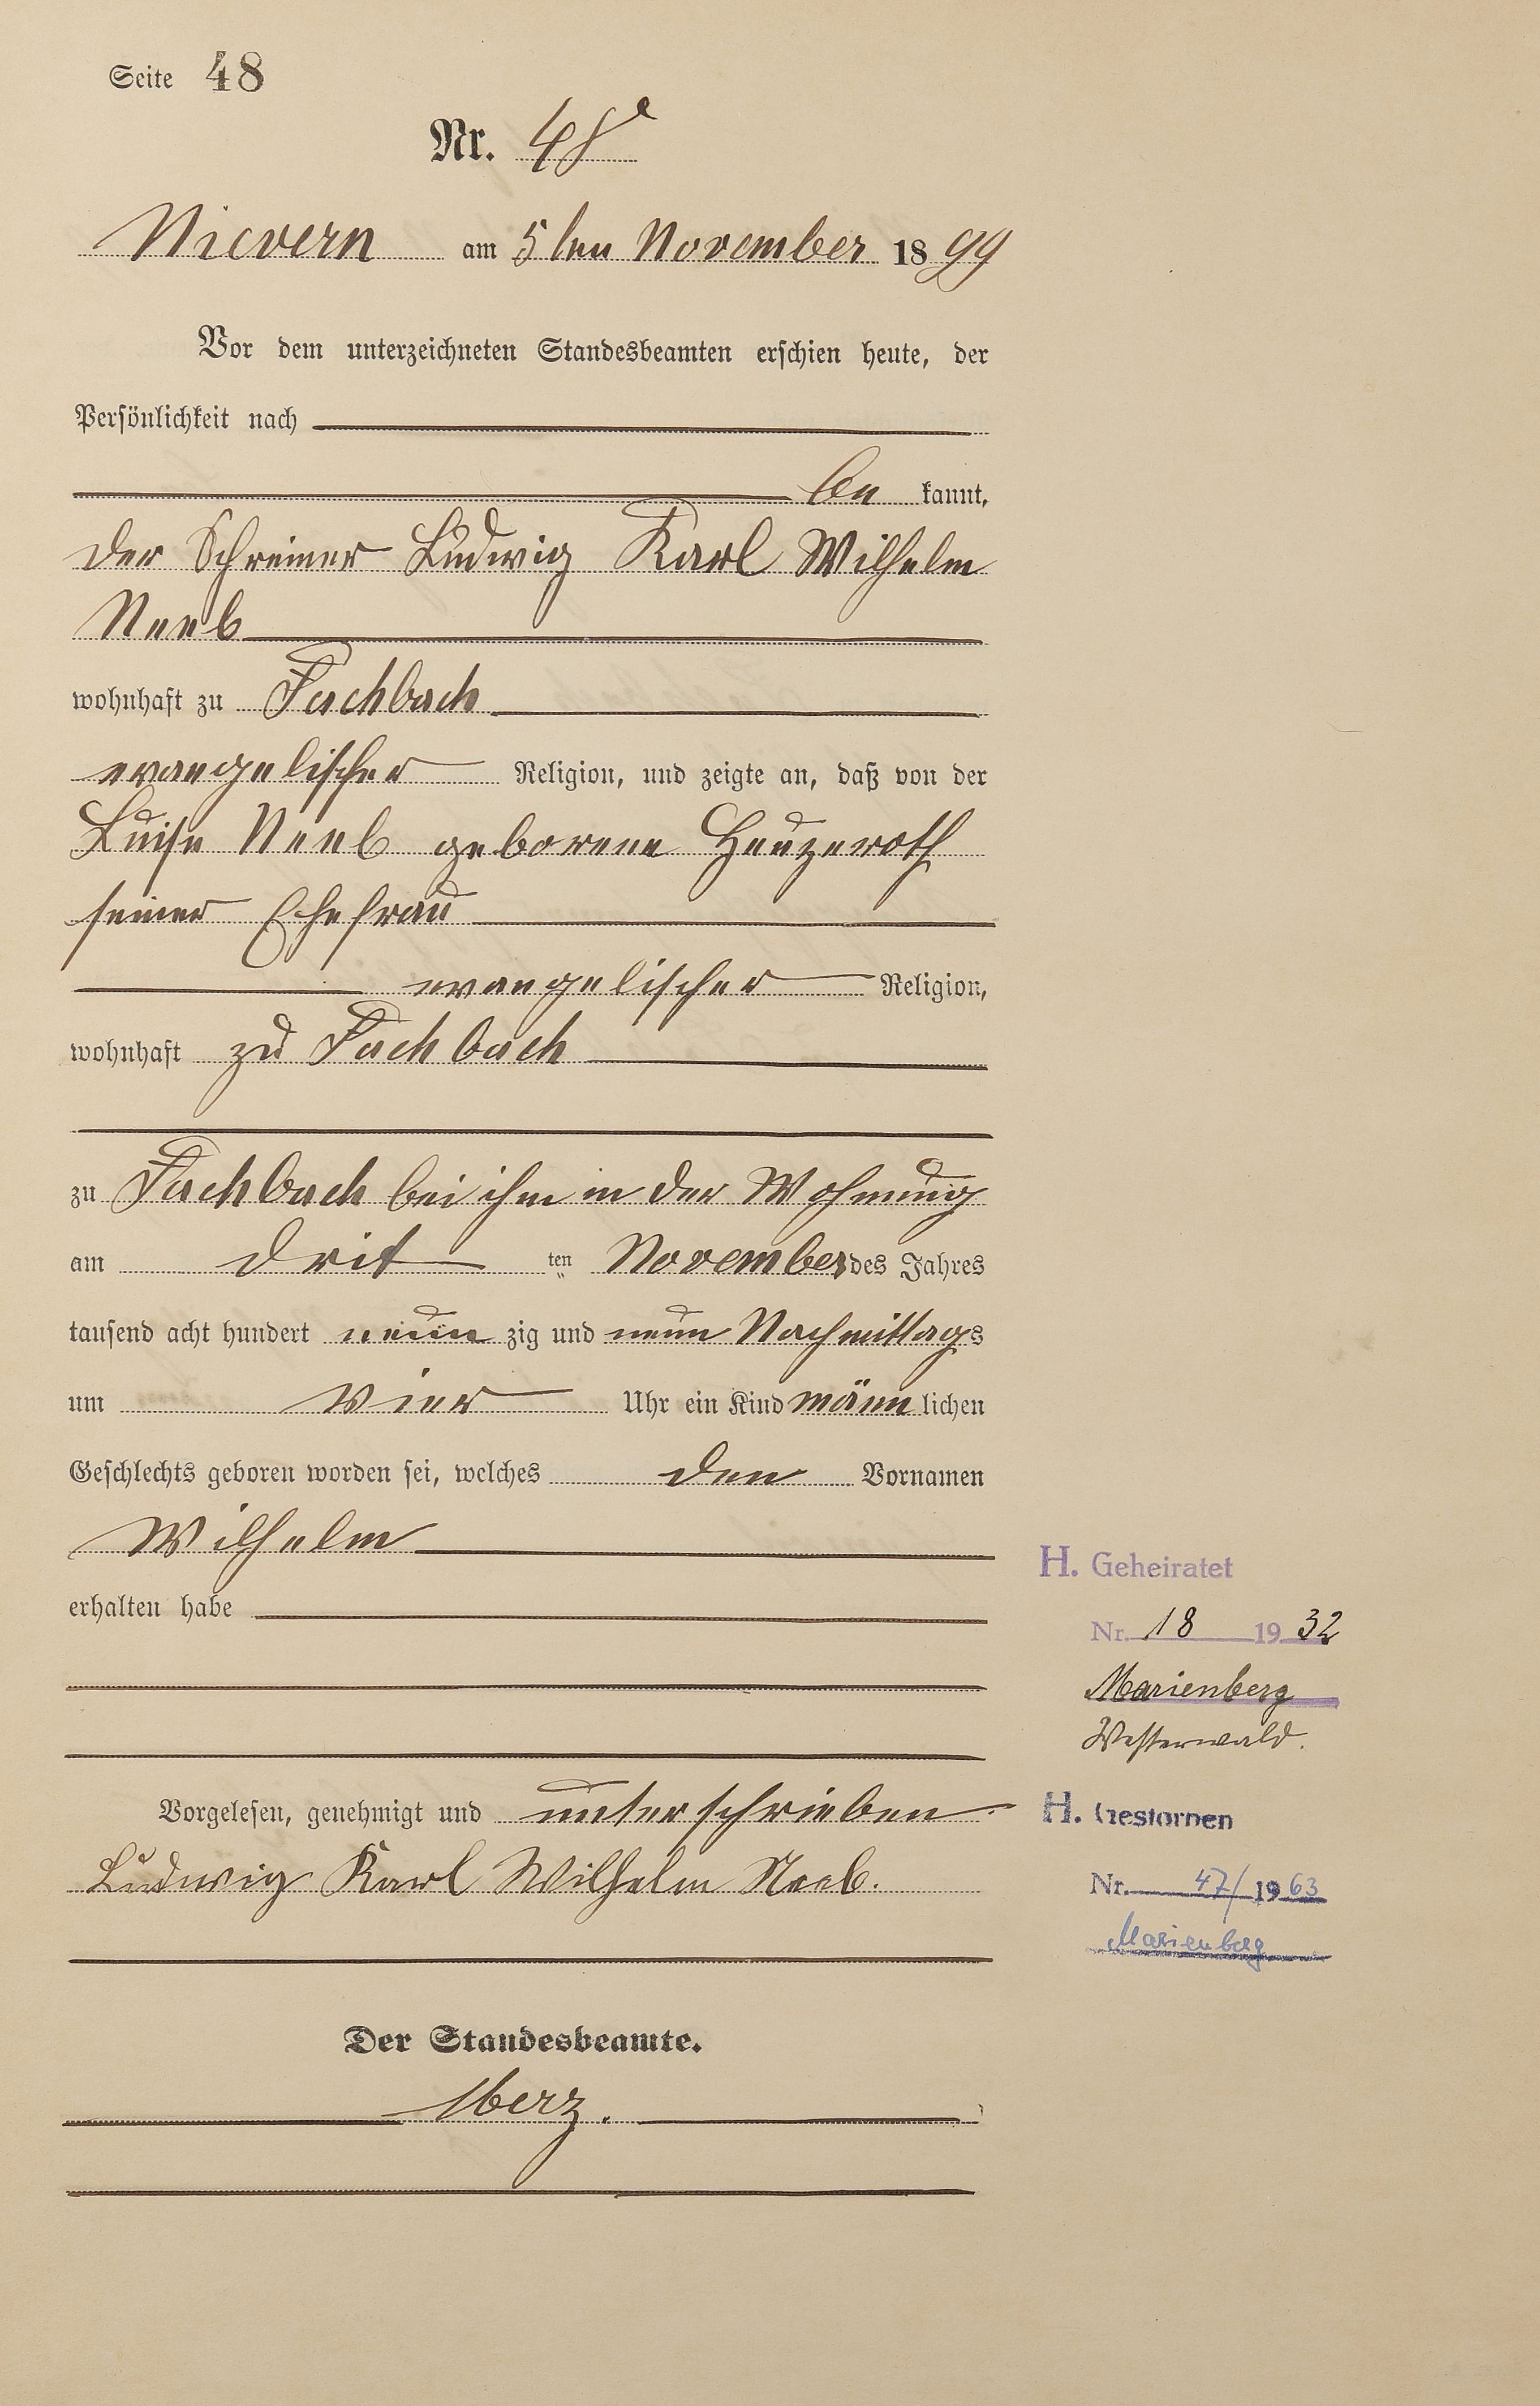 Seite 48
Nr. 48
Nievern am 5ten November 1899
Vor dem unterzeichneten Standesbeamten erschien heute, der
Persönlichkeit nach
be kannt,
der Schreiner Ludwig Karl Wilhelm
Neeb
wohnhaft zu Fachbach
evangelischer Religion, und zeigte an, daß von der
Luise Neeb geborene Heuzeroth
seiner Ehefrau
evangelischer Religion,
wohnhaft zu Fachbach
zu Fachbach bei ihm in der Wohnung
am drit ten November des Jahres
tausend acht hundert neun zig und neun Nachmittags
um vier Uhr ein Kind männlichen
Geschlechts geboren worden sei, welches den Vornamen
Wilhelm
erhalten habe
H. Geheiratet
Nr. 18 1932
Marienberg
Westerwald.
Vorgelesen, genehmigt und unterschrieben
Ludwig Karl Wilhelm Neeb.
H. Gestorben
Nr. 47/1963
Marienberg
Der Standesbeamte.